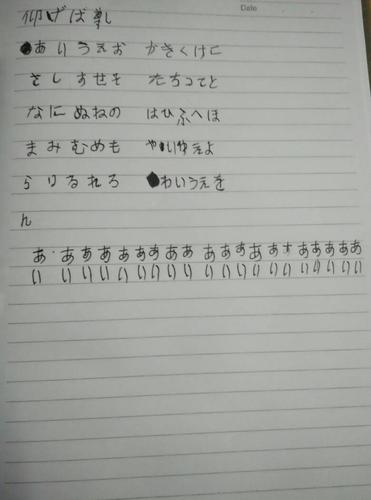 Date
仰げば尊し
あいうえお かきくけこ
さしすせそ たちつてと
なにぬねの はひふへほ
まみむめも やいゆえよ
らりるれろ わいうゑを
ん
あ あ あ あ あ あ あ あ あ あ あ あ あ あ あ あ あ あ あ
い い い い い い い い い い い い い い い い い い い